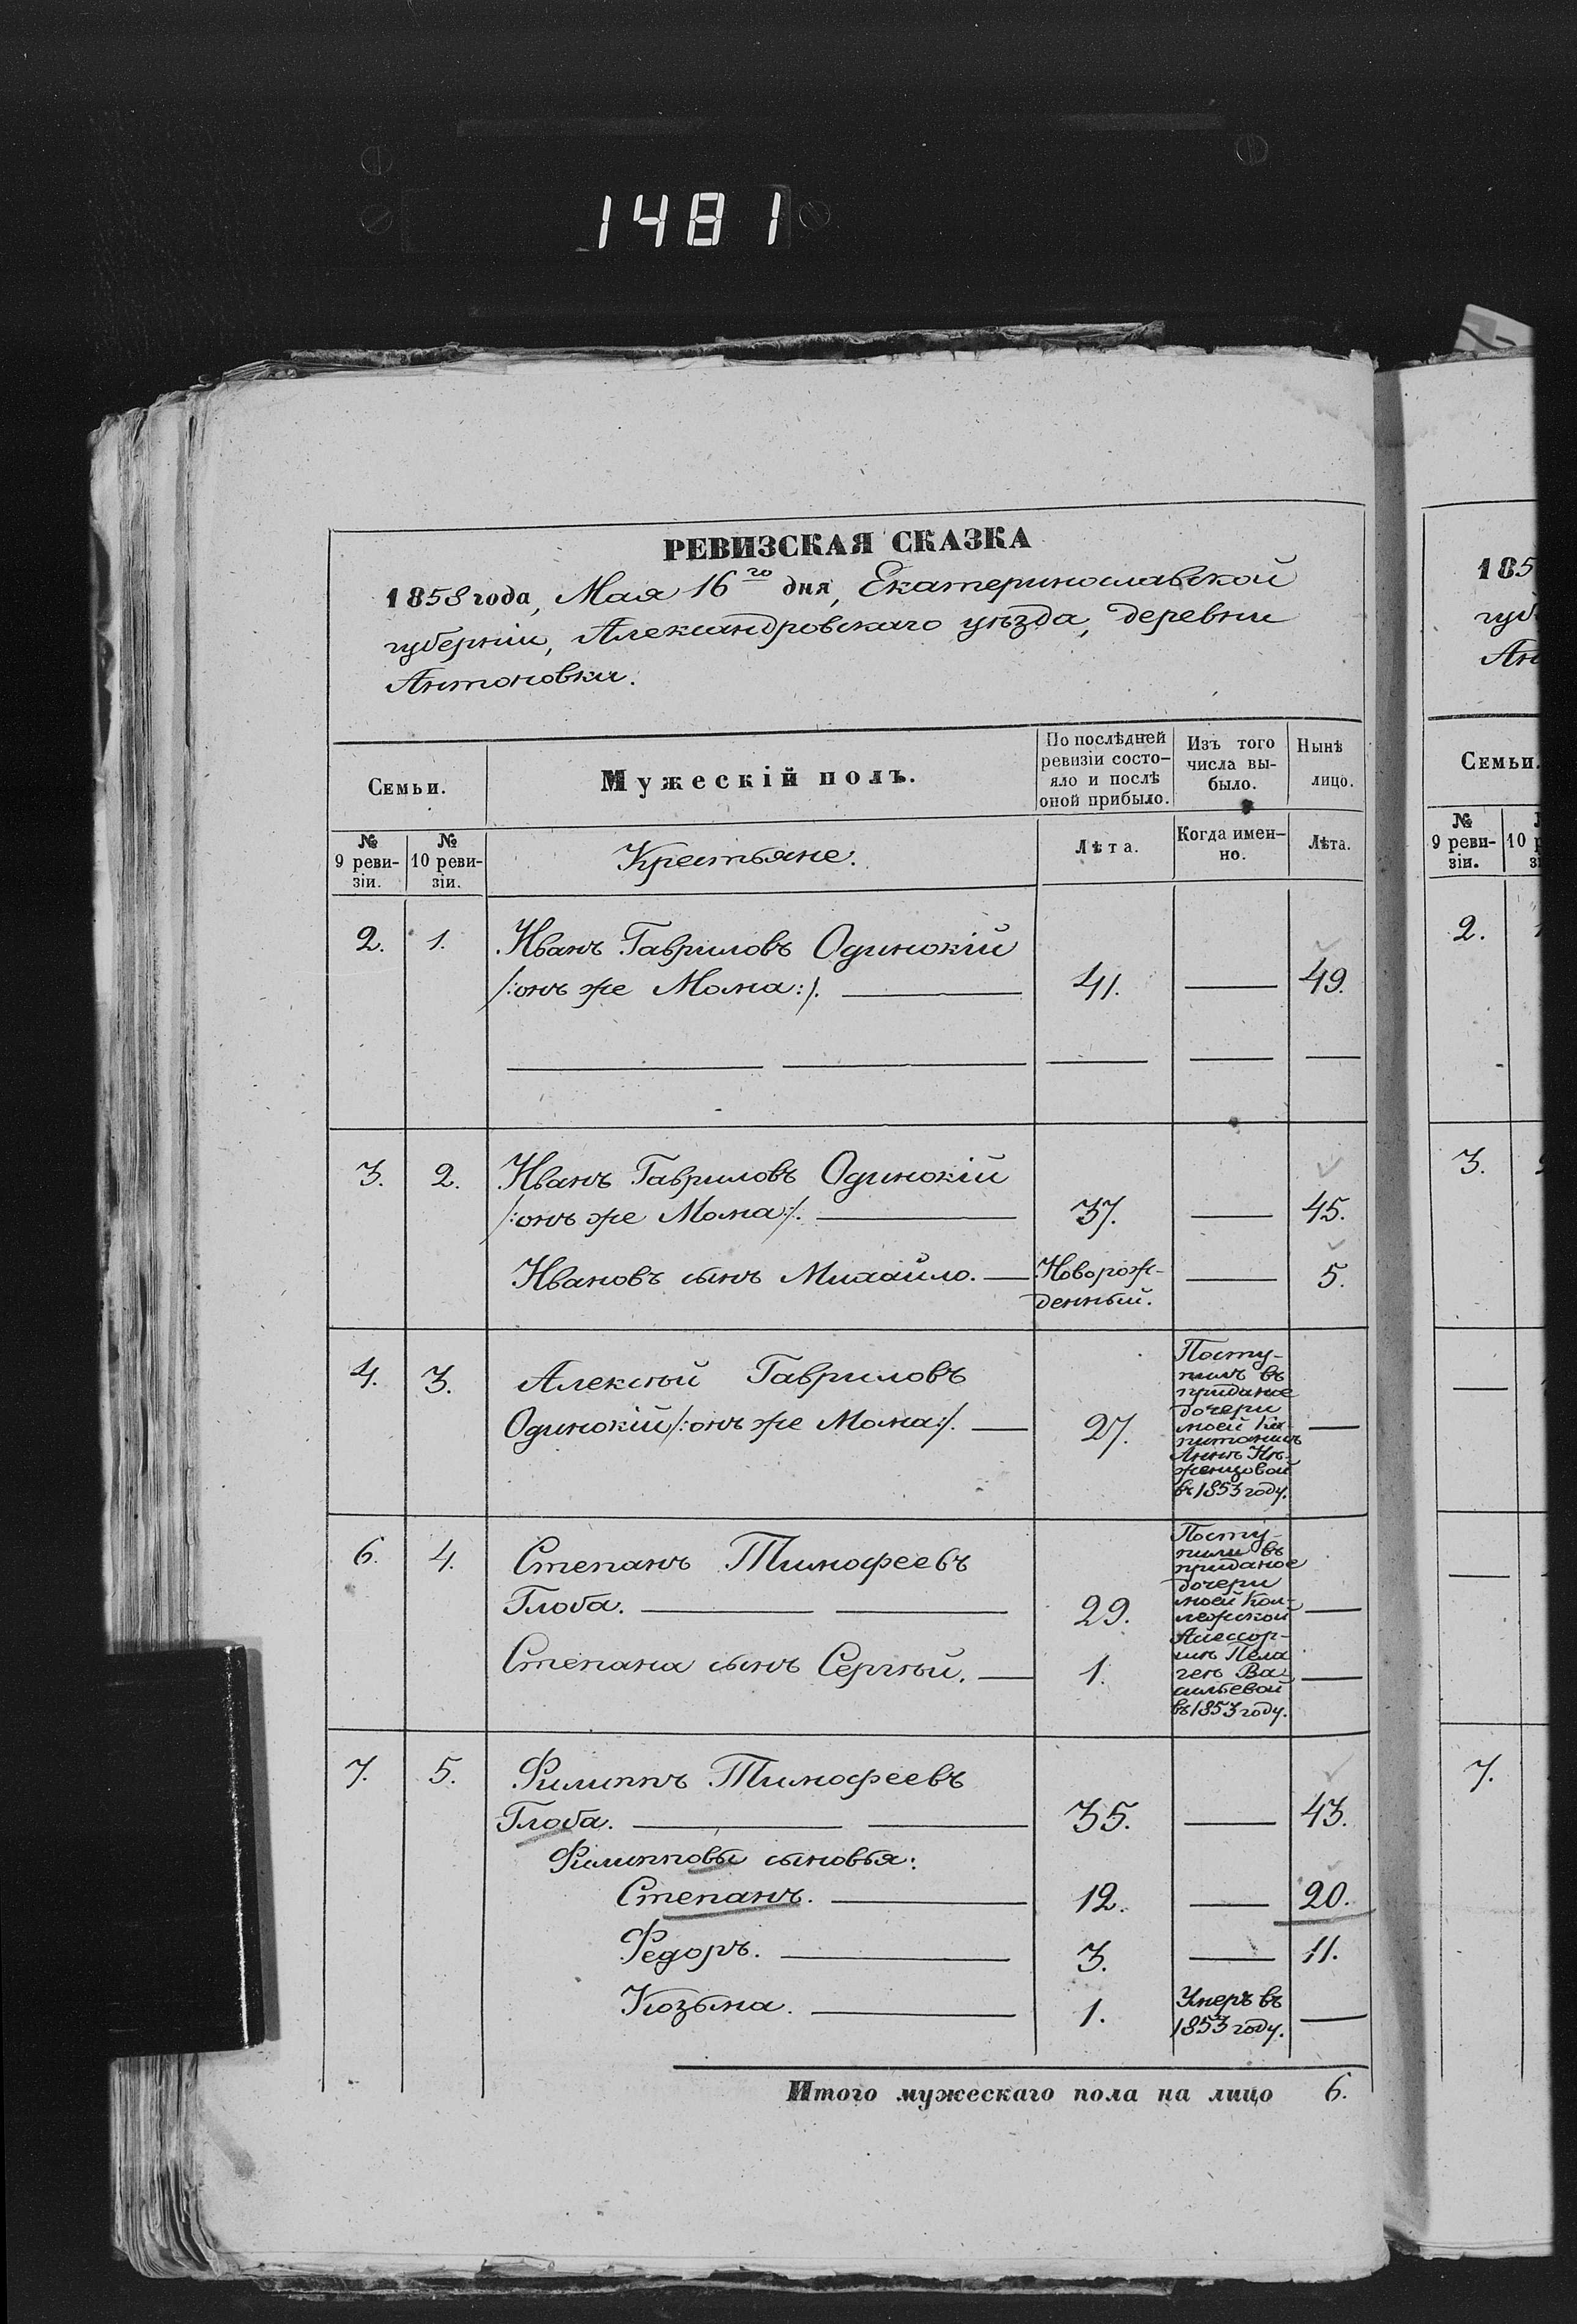 1481
РЕВИЗСКАЯ СКАЗКА
1858 года, Мая 16го дня, Екатеринославской
губерніи, Александровскаго уѣзда, деревни
Антоновки.
Семьи.
Мужескій полъ.
По послѣдней
ревизіи состо-
яло и послѣ
оной прибыло.
Изъ того
числа вы-
было.
Нынѣ
лицо.
№
9 реви-
зіи.
№
10 реви-
зіи.
Крестьяне.
Лѣта.
Когда имен-
но.
Лѣта.
2. 1. Иванъ Гавриловъ Одинокій
/:онъ же Мома:/. 41. 49.
3. 2. Иванъ Гавриловъ Одинокій
/:онъ же Мома:/. 37. 45.
Ивановъ сынъ Михайло. Новорож-
денный. 5.
4. 3. Алексѣй Гавриловъ
Одинокій /:онъ же Мома:/. 27.
Посту-
пилъ въ
приданое
дочери
моей Ка-
питаншѣ
Аннѣ
въ 1853 году.
6. 4. Степанъ Тимофеевъ
Глоба. 29.
Степана сынъ Сергѣй. 1.
Посту-
пили въ
приданое
дочери
моей Кол-
лежской
Ассесор-
шѣ Пела
геѣ Ва-
сильевой
въ 1853 году.
7. 5. Филиппъ Тимофеевъ
Глоба. 35. 43.
Филипповы сыновья:
Степанъ. 12. 20.
Федоръ. 3. 11.
Козьма. 1. Умеръ въ
1853 году.
Итого мужескаго пола на лицо 6.
185
губ
Ан
Семьи.
№
9 реви-
зіи.
10 р
2.
3.
7.